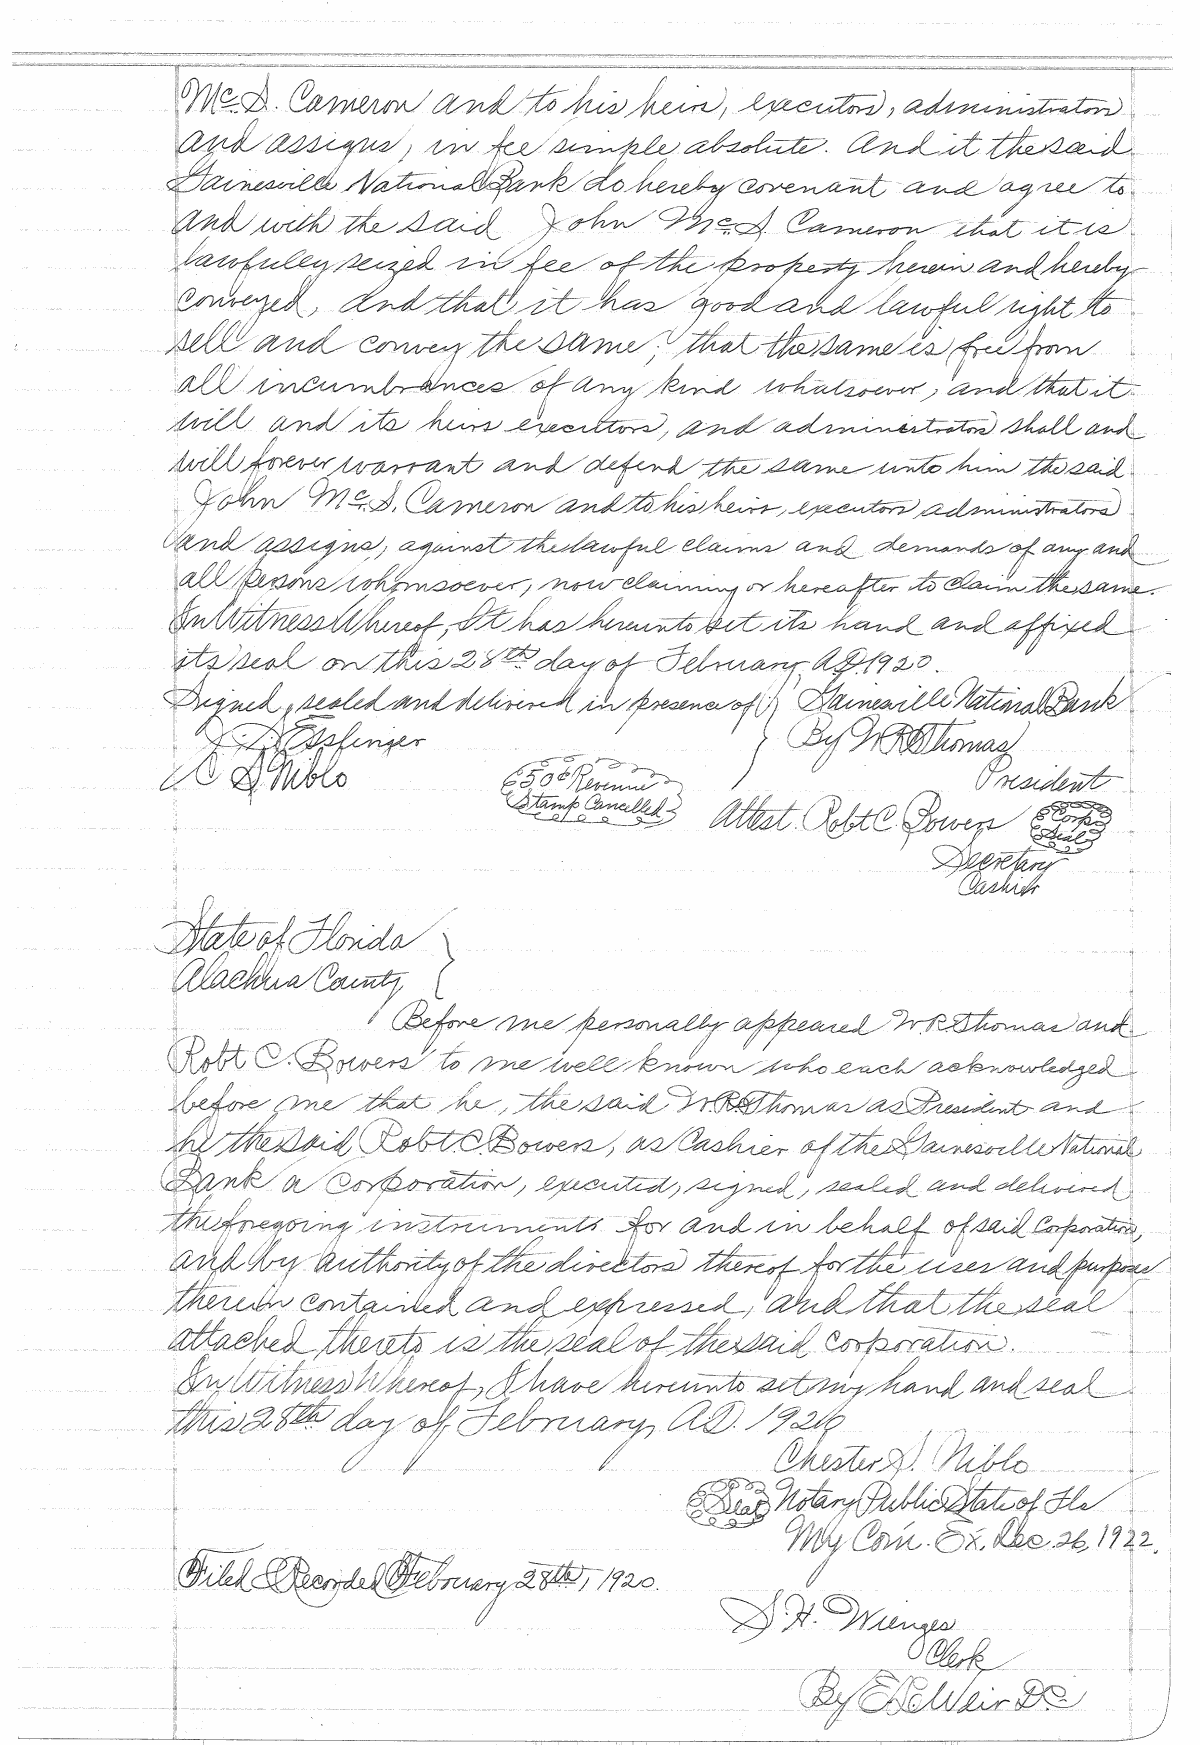 McD. Cameron and to his heirs, executors, administrators
and assigns, in fee simple absolute. And it the said
Gainesville National Bank do hereby covenant and agree to
and with the said John McD. Cameron that it is
lawfully seized in fee of the property herein and hereby
conveyed, and that it has good and lawful right to
sell and convey the same; that the same is free from
all incumbrances of any kind whatsoever, and that it
will and its heirs executors, and administrators shall and
will forever warrant and defend the same unto him the said
John McD. Cameron and to his heirs, executors administrators
and assigns, against the lawful claims and demands of any and
all persons whomsoever, now claiming or hereafter to claim the same.
In Witness Whereof, It has hereunto set its hand and affixed
its seal on this 28th day of February, A.D. 1920.
Signed, sealed and delivered in presence of } Gainesville National Bank
Essfinger } By W R Thomas
C D Niblo President
50¢ Revenue
Stamp Cancelled
Attest. Robt C. Bowers Corp
Seal
Secretary
Cashier
State of Florida }
Alachua County }
Before me personally appeared W R Thomas and
Robt C. Bowers to me well known who each acknowledged
before me that he, the said W R Thomas as President and
he the said Robt. C. Bowers, as Cashier of the Gainesville National
Bank a corporation, executed, signed, sealed and delivered
the foregoing instruments for and in behalf of said Corporation,
and by authority of the directors thereof for the uses and purpose
therein contained and expressed, and that the seal
attached thereto is the seal of the said corporation.
In Witness Whereof, I have hereunto set my hand and seal
this 28th day of February, A.D. 1920
Chester D. Niblo
Seal Notary Public State of Fla
My Com. Ex. Dec. 26, 1922.
Filed & Recorded February 28th, 1920.
S. H. Wienges
Clerk
By Weir D.C.